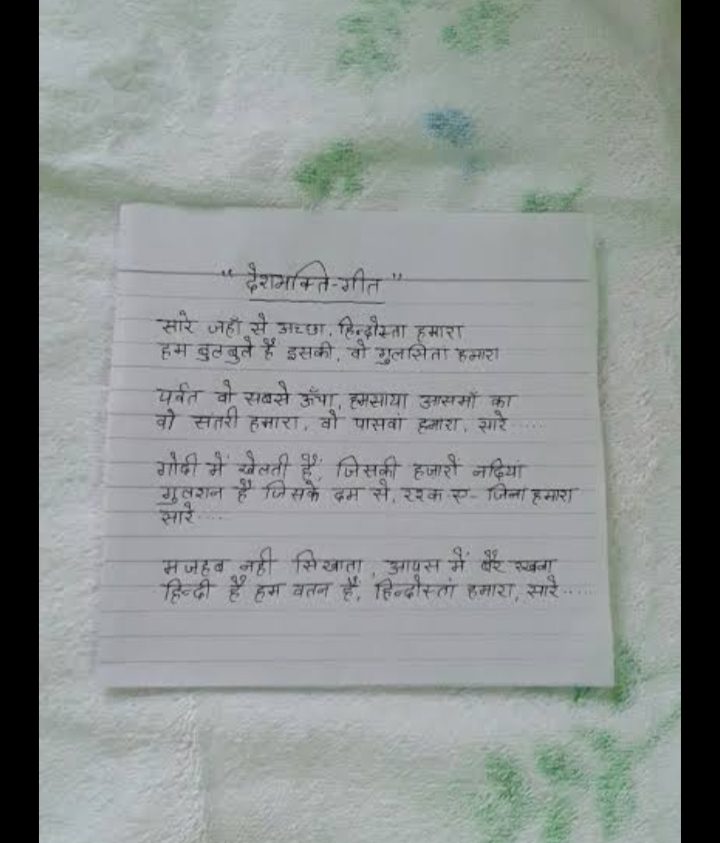 " देशभक्ति-गीत "
सारे जहाँ से अच्छा, हिन्दोस्ता हमारा
हम बुलबुले हैं इसकी, वो गुलसिता हमारा
पर्वत वो सबसे ऊँचा, हमसाया आसमाँ का
वो संतरी हमारा, वो पासवां हमारा, सारे.....
गोदी में खेलती हैं, जिसकी हजारों नदियां
गुलशन है जिसके दम से, रश्क ए- जिना हमारा
सारे....
मजहब नही सिखाता, आपस में बैर रखना
हिन्दी हैं हम वतन हैं, हिन्दोस्तां हमारा, सारे.....